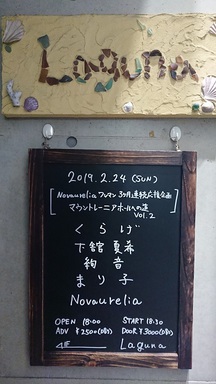 Laguna
2019. 2. 24 (SUN)
Novaurelia ワンマン 3ヵ月連続応援企画
マウントレーニアホールへの道
Vol. 2
くらげ
下舘 夏希
絢音
まり子
Novaurelia
OPEN 18:00 START 18:30
ADV ¥2500(D別) DOOR ¥3000(D別)
Laguna